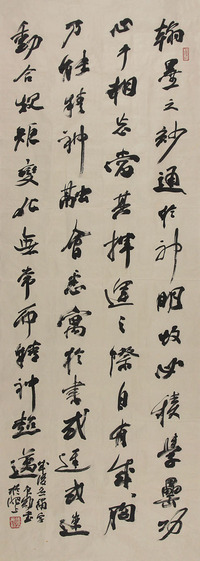 翰墨之妙通於神明故必積學累功
心手相忘當其揮運之際自有成胸
乃能精神融會悉寓於書或遲或速
動合規矩變化無常而精神超逸